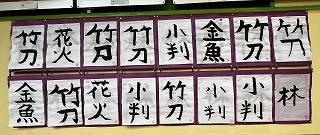 竹刀
花火
竹刀
竹刀
小判
金魚
竹刀
竹
金魚
竹刀
花火
小判
竹刀
小判
小判
林